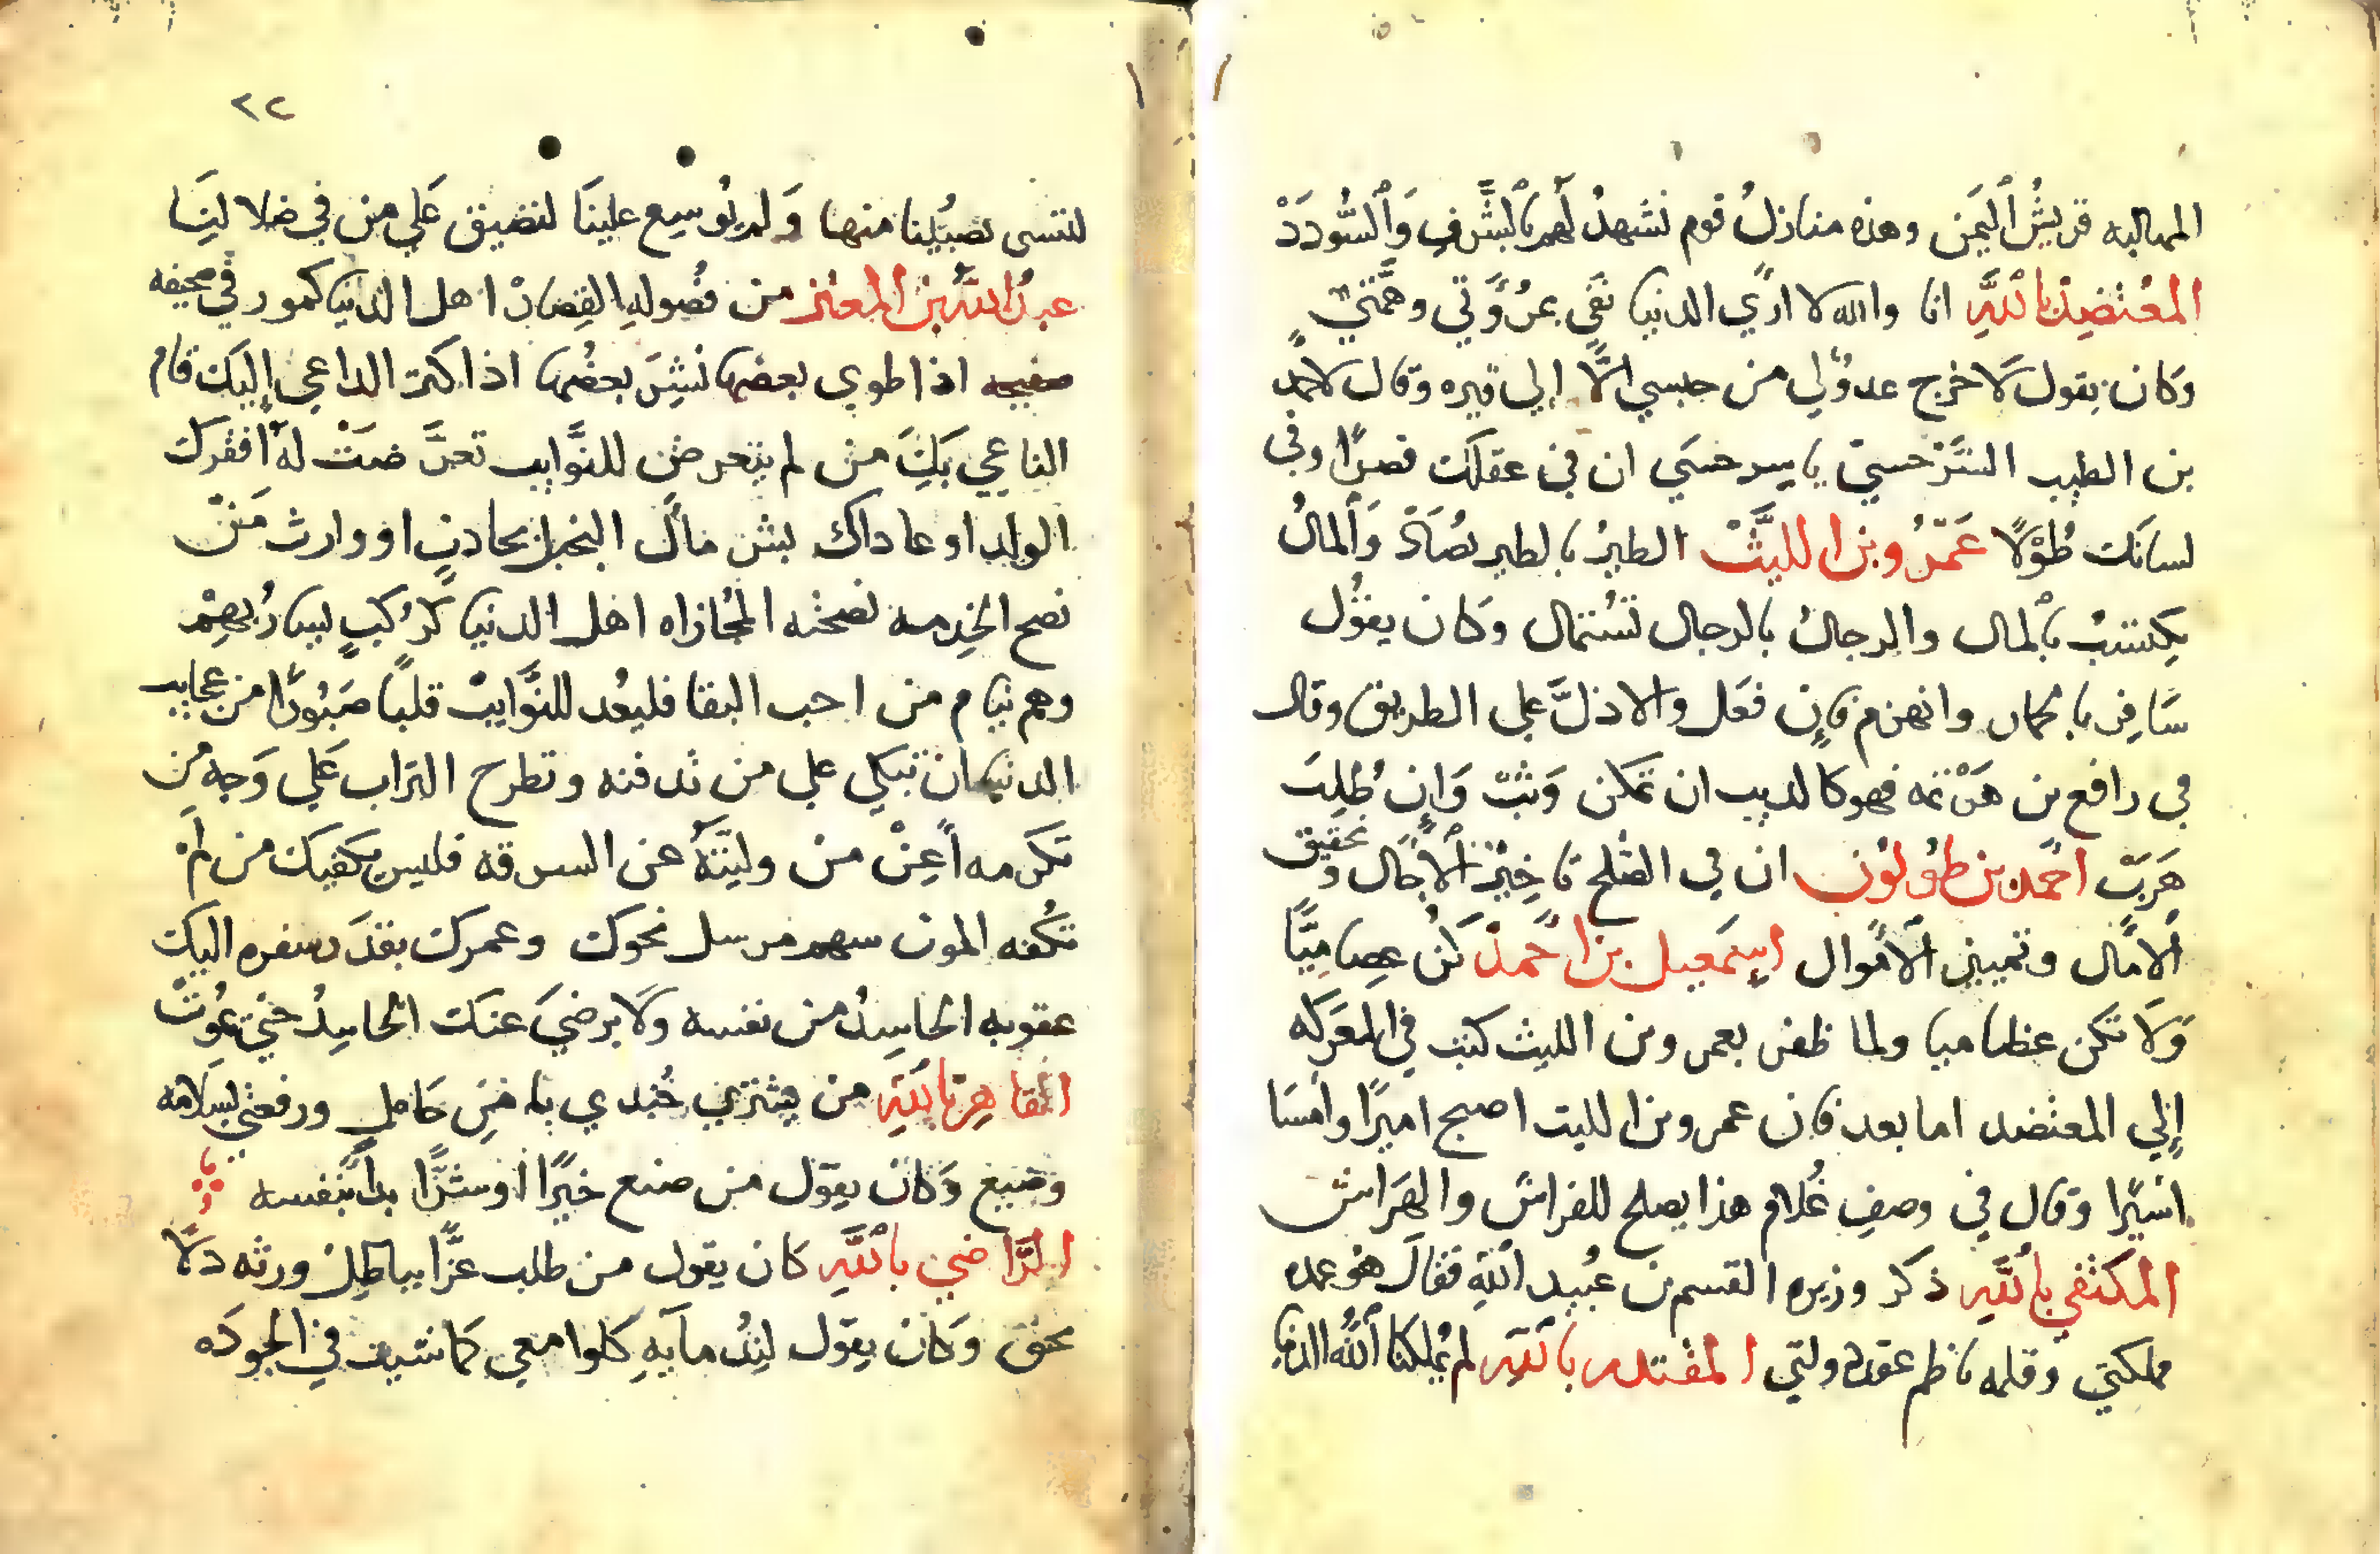 المهالبه قريش اليمن وهذه منازل قوم نشهد لهم بالشرف والسودد
المعتضد بالله انا والله لا ارى الدنيا تفى بمروتي وهمتي
وكان يقول لا خرج عدولي من حبسي الا الي قبره وقال لاحمد
بن الطيب السرخسي يا سرخسي ان في عقلك قصرا وفي
لسانك طولا عمرو بن الليث الطير بالطير يصاد والمال
يكتسب بالمال والرجال بالرجال تستمال وكان يقول
سافر وانهزم فان فعل والا ذل على الطريق وقال
في رافع بن هرثمه فهو كالديب ان تمكن وثب وان طلب
هرب احمد بن طولون ان في الصلح تاخير الآجال وتحقيق
الامال وتمييز الاموال اسمعيل بن احمد كن عصاميا
ولا تكن عظاميا ولما ظفر بعمرو بن الليث كتب في المعركه
الي المعتضد اما بعد فان عمرو بن الليث اصبح اميرا وامسا
اسيرا وقال في وصف غلام هذا يصلح للفراش والهراش
المكتفي بالله ذكر وزيره القسم بن عبيد الله فقال هو عمده
مملكتي وقلمه ناظم عقد دولتي المقتدر بالله لم يملكنا الله الدنيا
٢٢
لننسى نصيبنا منها ولم يوسع علينا لنضيق علي من في ظلالنا
عبد الله بن المعتز من فصوله القصار اهل الدنيا كصور في صحيفه
اذا طوي بعضها نشر بعضها اذا كثر الداعي اليك قام
الناعي بك من لم يتعرض للنوايب تعرضت له افقرك
الولد او عاداك بشر مال البخيل بحادث او وارث من
نصح الخدمه نصحته المجازاه اهل الدنيا كركب يسار بهم
وهم نيام من احب البقا فليعد للنوايب قلبا صبورا من عجايب
الدنيا ان تبكي علي من تدفنه وتطرح التراب علي وجه من
تكرمه اعن من وليته عن السرقه فليس يكفيك من لم
تكفه الموت سهم مرسل نحوك وعمرك بقدر سفره اليك
عقوبه الحاسد من نفسه ولا يرضي عنك الحاسد حتي تموت
القاهر بالله من يشتري
وضيع وكان يقول من صنع خيرا او شرا بدا بنفسه
الراضي بالله كان يقول من طلب عزا بباطل ورثه ذلا
بحق وكان يقول لندمايه كلوا معي في الجوده